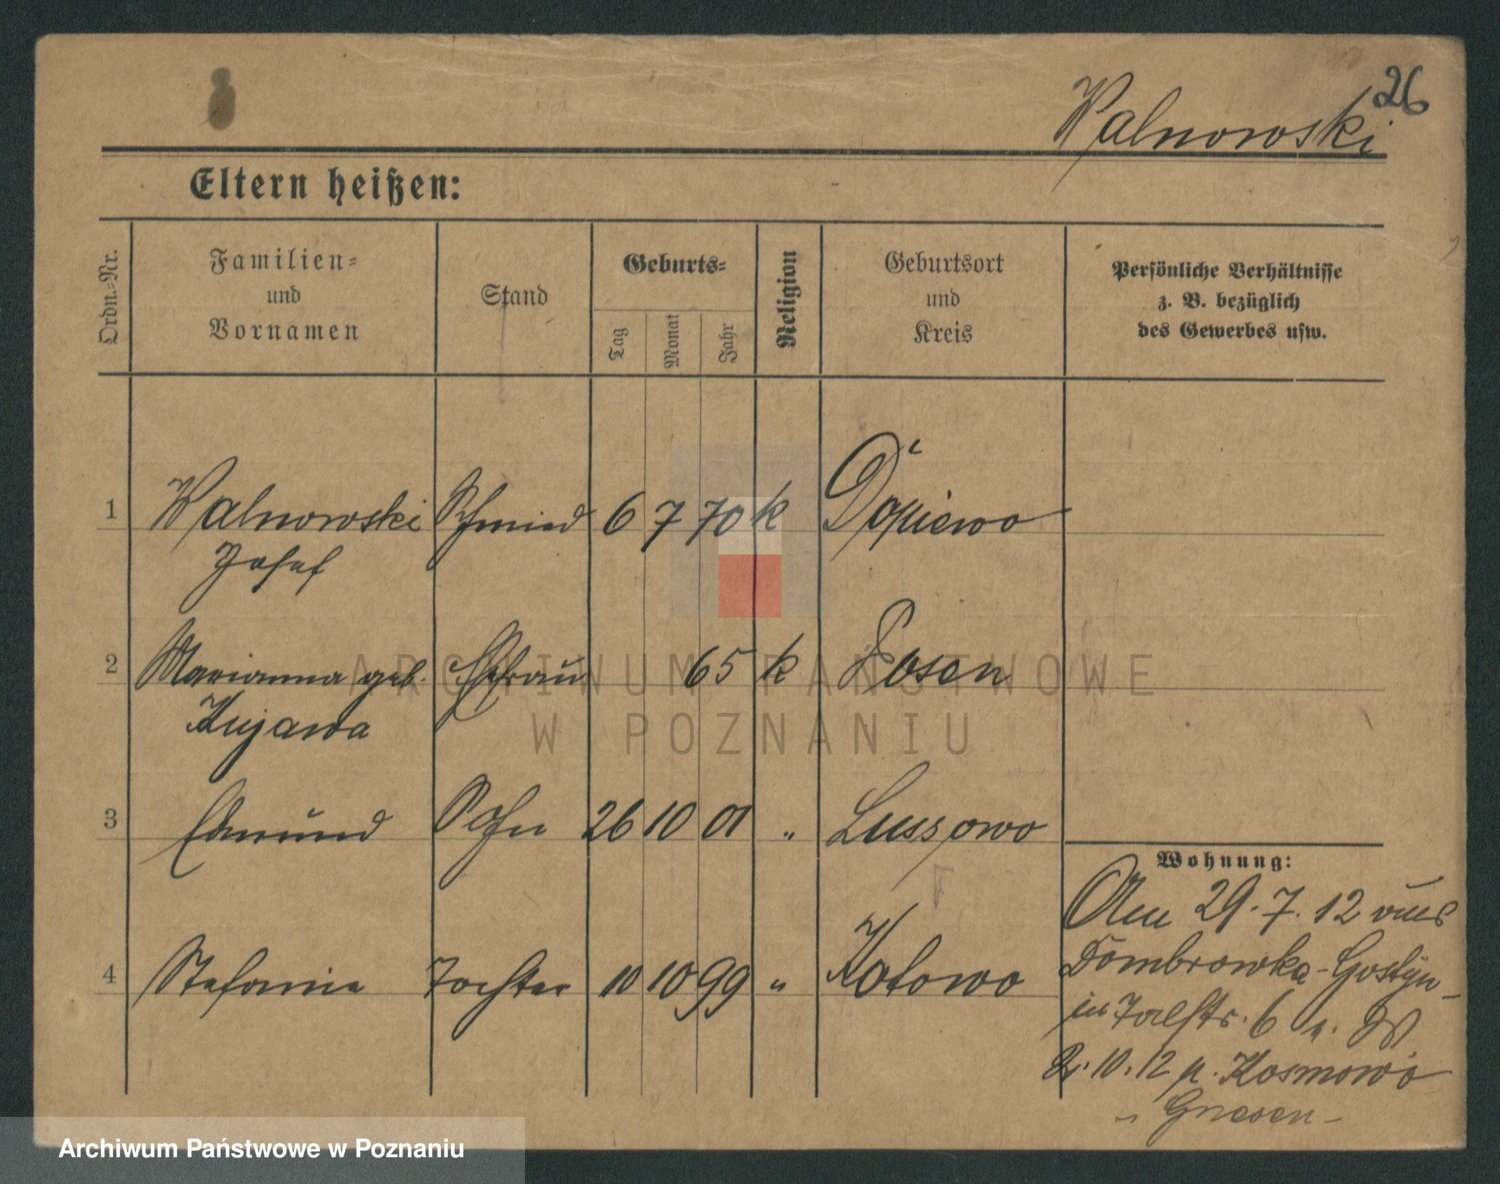 26
Walnowski
Eltern heißen:
Ordn.-Nr.
Familien-
und
Vornamen
Stand
Geburts-
Tag
Monat
Jahr
Religion
Geburtsort
und
Kreis
Persönliche Verhältnisse
z. B. bezüglich
des Gewerbes usw.
1 Walnowski Schmied 6 7 70 k Dopiewo
Josef
2 Marianna geb. Ehefrau 65 k Posen
Kujawa
3 Edmund Sohn 26 10 01 " Lussowo
4 Stefanie Tochter 10 10 99 " Kotowo
Wohnung:
Am 29.7.12 aus
Dombrowka-Gostyn
in Talstr. 6
2.10.12 p. Kosmowo
- Gnesen -
ARCHIWUM PAŃSTWOWE
W POZNANIU
Archiwum Państwowe w Poznaniu